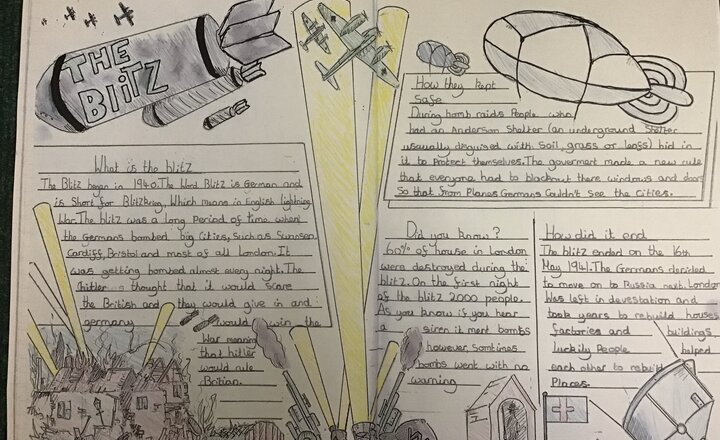 THE
BLITZ
What is the blitz
The Blitz began in 1940. The Word Blitz is German and
is Short for Blitzkrieg, Which means in English lightning
War. The blitz was a long Period of time when
the Germans bombed big Cities, Such as Swansea,
Cardiff, Bristol and most of all London. It
was getting bombed almost every night. The
(hitler thought that it would scare
the British and they would give in and
germany would win the
War meaning
that hitler
would rule
Britian.
How they kept
Safe
During bomb raids People who
had an Anderson Shelter (an underground Shelter
usually disguised with Soil, grass or leafs) hid in
it to Protect themselves. The goverment made a new rule
that everyone had to blackout there windows and doors
So that from Planes Germans Couldn't see the Cities.
Did you know?
60% of house in London
were destroyed during the
blitz. On the first night
of the blitz 2000 people.
As you know is you hear
a siren it ment bombs
however, Somtimes
bombs went with no
warning
How did it end
The blitz ended on the 16th
May 1941. The Germans decided
to move on to Russia next. London
Was left in devestation and
took years to rebuild houses
factories and buildings.
luckily People helped
each other to rebuild
Places.